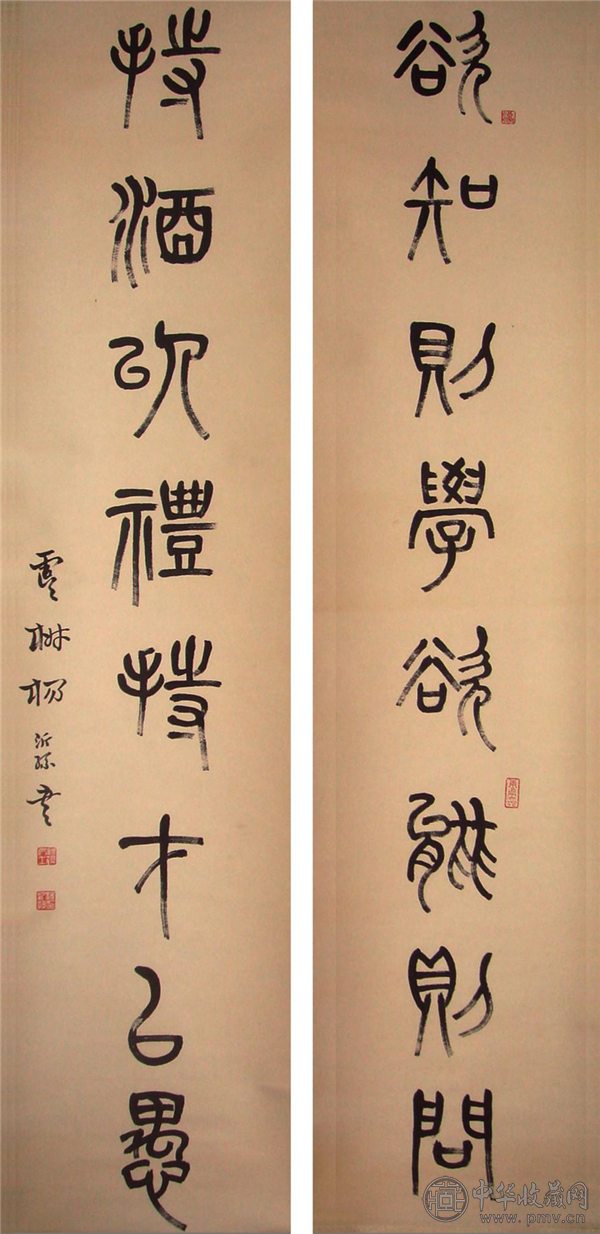 欲知則學欲能則問
持酒以禮持才以愚
虞山楊沂孫書
中华收藏网
www.pmv.cn